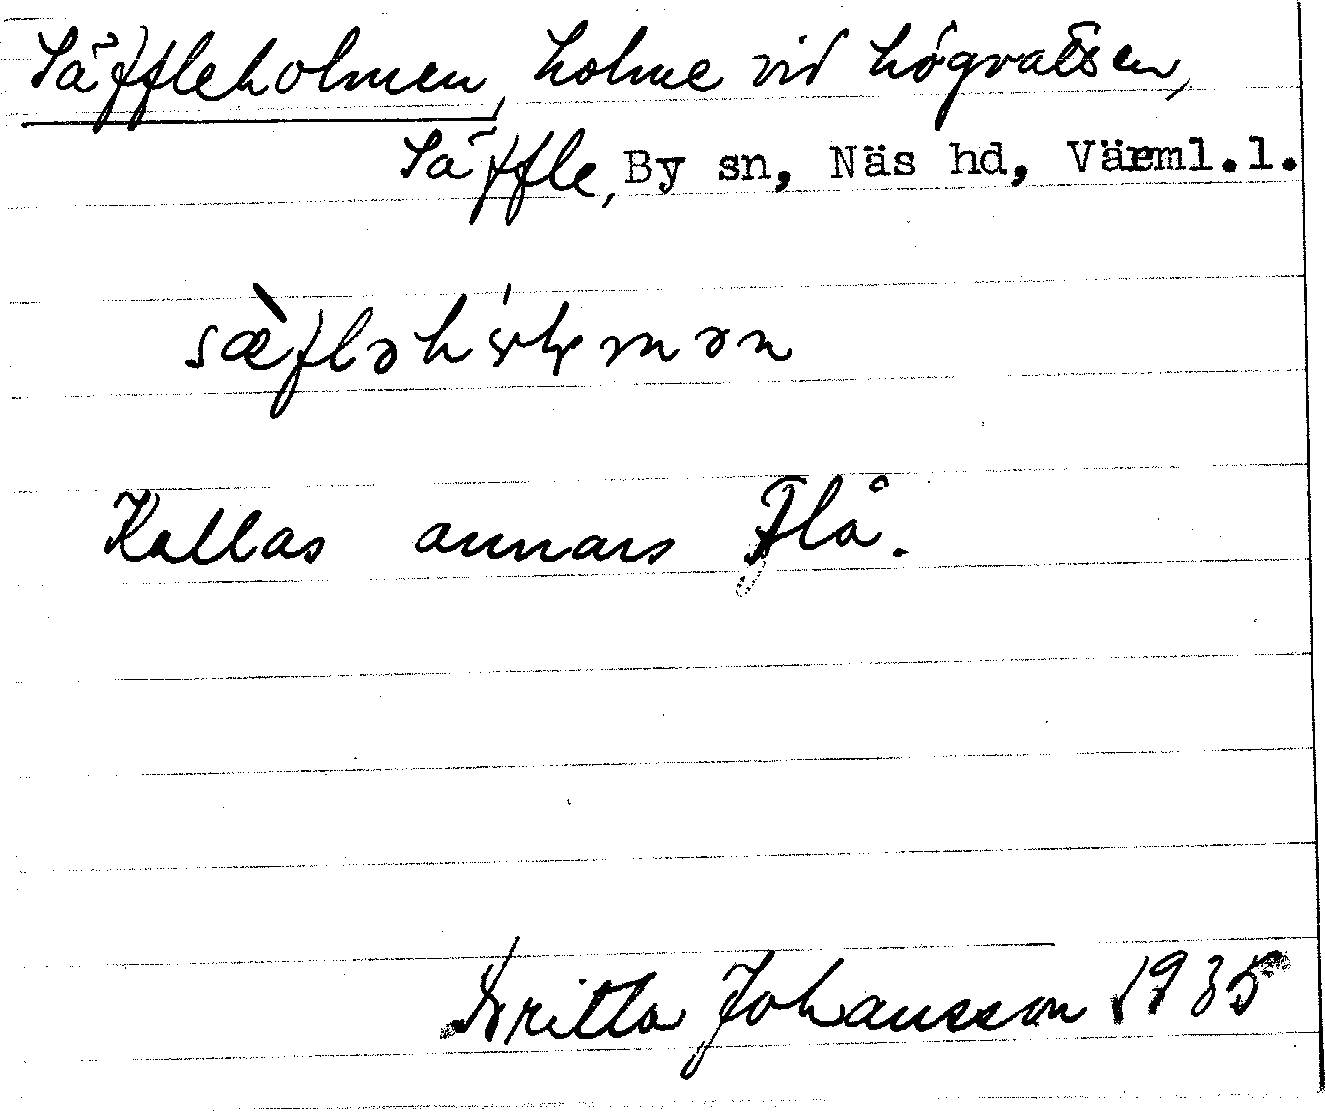 Säffleholmen, holme vid högvatten,
Säffle, By sn, Näs hd, Värml.l.
Kallas annars Flå.
Britta Johansson 1935